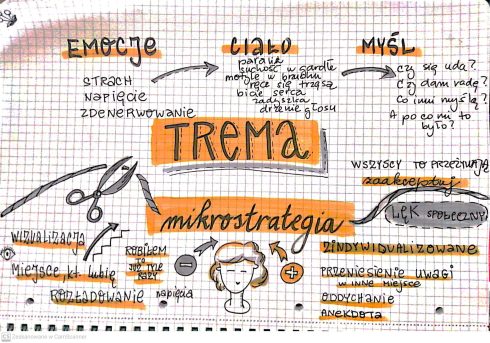 EMOCJE
CIAŁO
MYŚL
STRACH
NAPIĘCIE
ZDENERWOWANIE
paraliż
suchość w gardle
motyle w brzuchu
ręce się trzęsą
bicie serca
zadyszka
drżenie głosu
Czy się uda?
Czy dam radę?
Co inni myślą?
A po co mi to
było?
TREMA
WSZYSCY TO PRZEŻYWAJĄ
zaakceptuj
LĘK SPOŁECZNY
mikrostrategia
WIZUALIZACJA
MIEJSCE, kt. lubię
ROZŁADOWANIE napięcia
ROBIŁEM
TO
JUŻ TYLE
RAZY
ZINDYWIDUALIZOWANE
PRZENIESIENIE UWAGI
W INNE MIEJSCE
ODDYCHANIE
ANEKDOTA
Zeskanowane w CamScanner